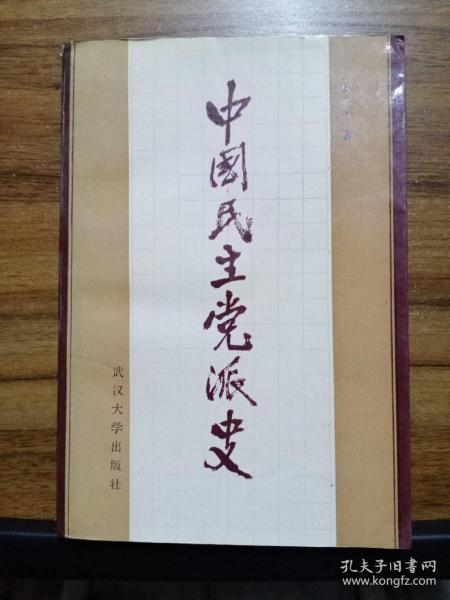 中國民主党派史
武汉大学出版社
孔夫子旧书网
www.kongfz.com